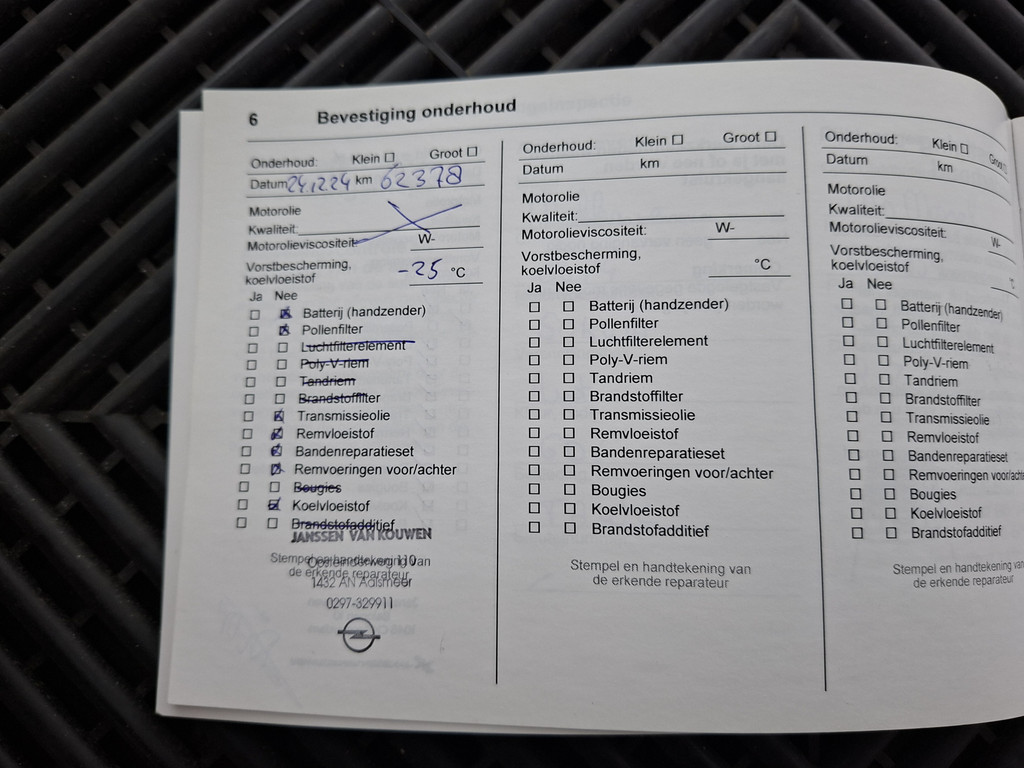 6 Bevestiging onderhoud
Onderhoud: Klein ☐ Groot ☐
Datum 24.2.24 km 62378
Motorolie
Kwaliteit:
Motorolieviscositeit: W-
Vorstbescherming,
koelvloeistof -25 °C
Ja Nee
☐ ☒ Batterij (handzender)
☐ ☒ Pollenfilter
☐ ☐ Luchtfilterelement
☐ ☐ Poly-V-riem
☐ ☐ Tandriem
☐ ☐ Brandstoffilter
☐ ☒ Transmissieolie
☐ ☒ Remvloeistof
☐ ☒ Bandenreparatieset
☐ ☒ Remvoeringen voor/achter
☐ ☐ Bougies
☐ ☒ Koelvloeistof
☐ ☐ Brandstofadditief
JANSSEN VAN KOUWEN
Stempel en handtekening van
110
de erkende reparateur
1432 AN Aalsmeer
0297-329911
Onderhoud: Klein ☐ Groot ☐
Datum km
Motorolie
Kwaliteit:
Motorolieviscositeit: W-
Vorstbescherming,
koelvloeistof °C
Ja Nee
☐ ☐ Batterij (handzender)
☐ ☐ Pollenfilter
☐ ☐ Luchtfilterelement
☐ ☐ Poly-V-riem
☐ ☐ Tandriem
☐ ☐ Brandstoffilter
☐ ☐ Transmissieolie
☐ ☐ Remvloeistof
☐ ☐ Bandenreparatieset
☐ ☐ Remvoeringen voor/achter
☐ ☐ Bougies
☐ ☐ Koelvloeistof
☐ ☐ Brandstofadditief
Stempel en handtekening van
de erkende reparateur
Onderhoud: Klein ☐ Groot
Datum km
Motorolie
Kwaliteit:
Motorolieviscositeit: W-
Vorstbescherming,
koelvloeistof °C
Ja Nee
☐ ☐ Batterij (handzender)
☐ ☐ Pollenfilter
☐ ☐ Luchtfilterelement
☐ ☐ Poly-V-riem
☐ ☐ Tandriem
☐ ☐ Brandstoffilter
☐ ☐ Transmissieolie
☐ ☐ Remvloeistof
☐ ☐ Bandenreparatieset
☐ ☐ Remvoeringen voor/acht
☐ ☐ Bougies
☐ ☐ Koelvloeistof
☐ ☐ Brandstofadditief
Stempel en handtekening van
de erkende reparateur